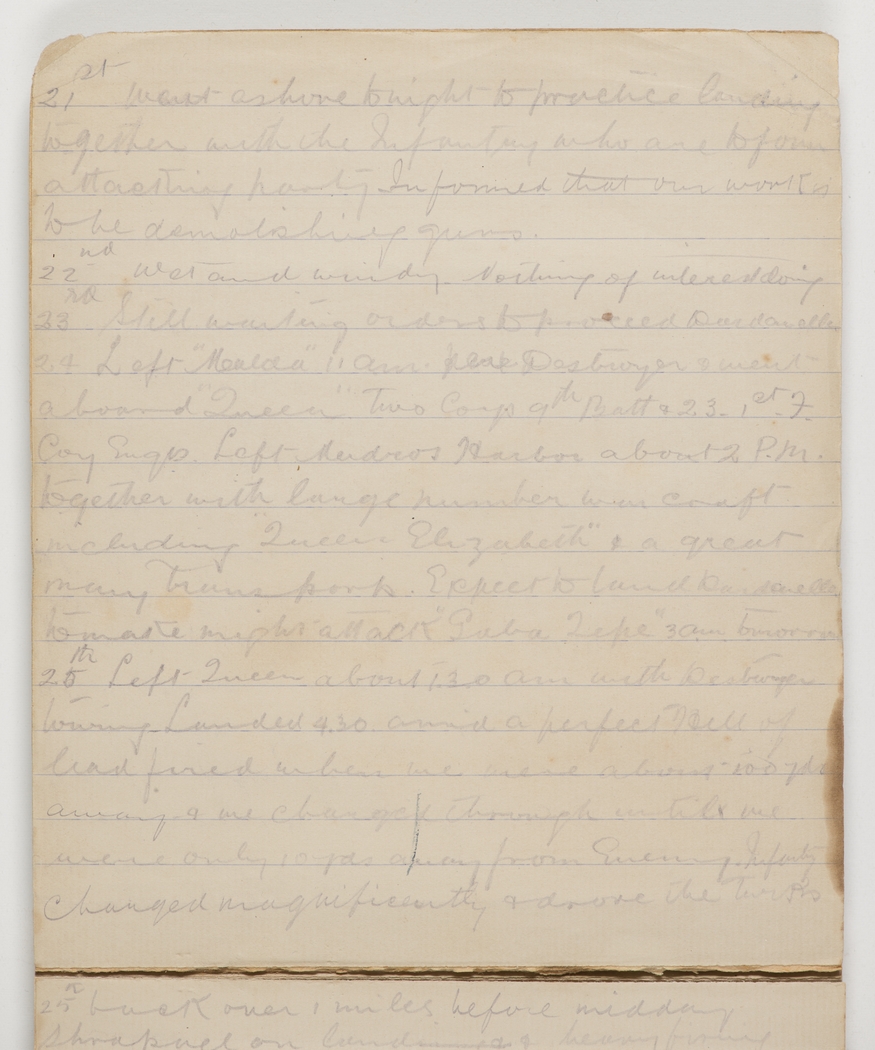 21st Went ashore tonight to practice landing
together with the Infantry who are to form
attacking party. Informed that our work is
to be demolishing guns.
22nd Wet and windy. Nothing of interest doing
23rd Still waiting orders to proceed Dardanelles
24 Left "Malda" 11 am. Destroyer & went
aboard "Queen" Two Corps 9th Batt & 23. 1st F.
Coy Engs. Left Mudros Harbor about 2 P.M.
together with large number war craft
including "Queen Elizabeth" & a great
many transports. Expect to land Dardanelles
to make night attack "Gaba Tepe" 3am tomorrow
25th Left Queen about 1.30 am with Destroyer
towing Landed 4.30 amid a perfect Hell of
lead fired when we were about 100 yds
away & we charged through until we
were only 10 yds away from Enemy. Infantry
charged magnificently & drove the Turks
25 back over 1 miles before midday
Shrapnel on landing & heavy firing